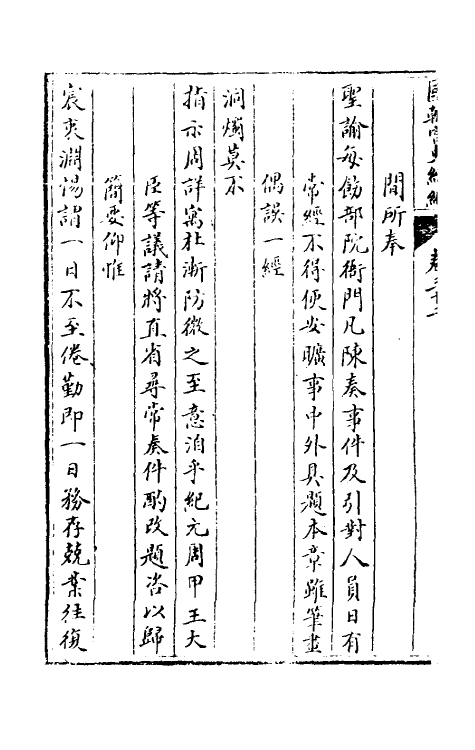 國朝宮史續編 卷三十二
間所奉
聖諭每飭部院衙門凡陳奏事件及引對人員日有
常經不得使安曠事中外具題本章雖筆畫
偶誤一經
洞燭莫不
指示周詳寓杜漸防微之至意洎乎紀元周甲王大
臣等議請將直省尋常奏件酌改題咨以歸
簡要仰惟
宸衷淵惕謂一日不至倦勤即一日務存兢業往復